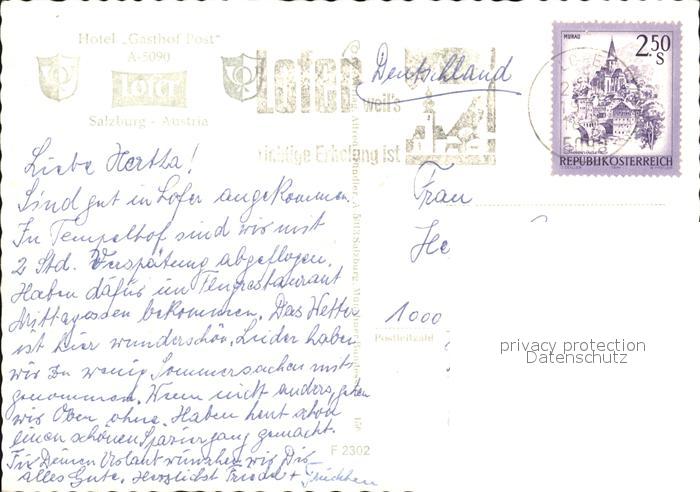 Hotel „Gasthof Post"
A-5090
Lofer
Salzburg - Austria
Lofer
weil's
richtige Erholung ist
Deutschland
MURAU
2.50
S
REPUBLIK ÖSTERREICH
Liebe Hertha!
Sind gut in Lofer angekommen.
In Tempelhof sind wir mit
2 Std. Verspätung abgeflogen.
Haben dafür im Flugrestaurant
Mittagessen bekommen. Das Wetter
ist hier wunderschön. Leider haben
wir zu wenig Sommersachen mit
genommen. Wenn nicht anders, gehen
wir Oben ohne. Haben heut schon
einen schönen Spaziergang gemacht.
Für Deinen Urlaub wünschen wir Dir
alles Gute. Herzlichst Friedel +
Frau
He
1000
Postleitzahl
F 2302
privacy protection
Datenschutz